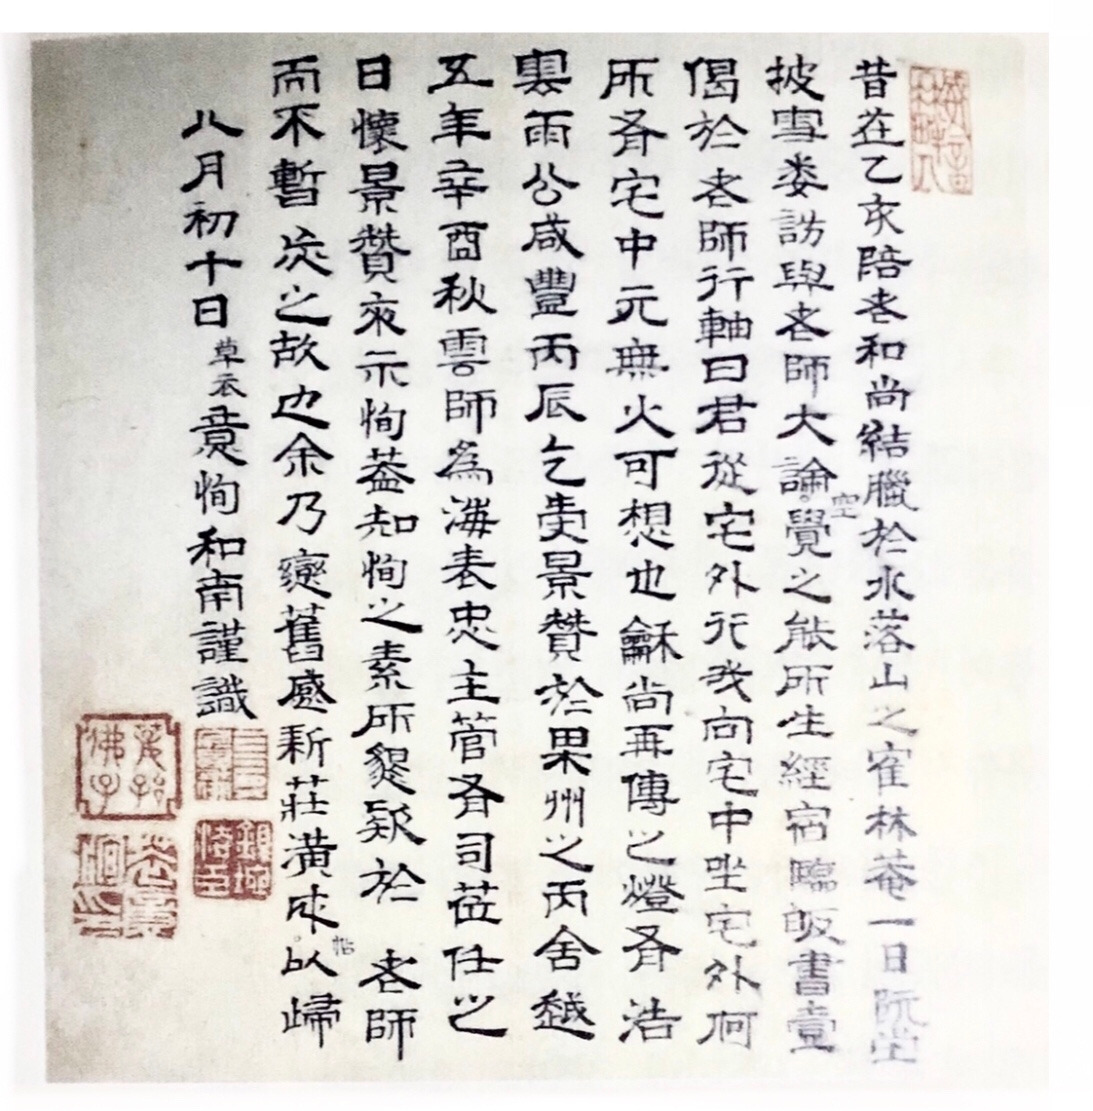 昔在乙亥陪老和尚結臘於水落山之寉林菴一日阮堂
披雪委訪與老師大論空覺之能所生經宿臨皈書壹
偈於老師行軸曰君從宅外行我向宅中坐宅外何
所有宅中元無火可想也龢尚再傳之燈有浩
雲雨公咸豐丙辰乞書景贊於果州之丙舍越
五年辛酉秋雲師爲海表忠主管有司莅任之
日懷景贊來示恂葢知恂之素所貇欵於 老師
而不暫忘之故也余乃變舊感新莊潢成帖以歸
八月初十日草衣意恂和南謹識